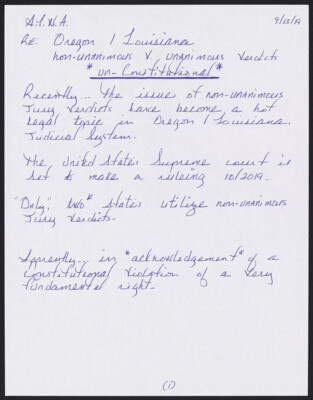 A.P.W.A. 9/13/19
RE: Oregon / Louisiana
non-unanimous V. unanimous Verdicts
*un-Constitutional*
Recently... The issue of non-unanimous
Jury Verdicts have become a hot
legal topic in Oregon / Louisiana.
Judicial System.
The United States Supreme court is
set to make a ruleing 10/2019.
"Only", two* States utilize non-unanimous
Jury Verdicts.
Apprently... in *acknowledgement* of a
Constitutional Violation of a very
fundamental right.
(1)